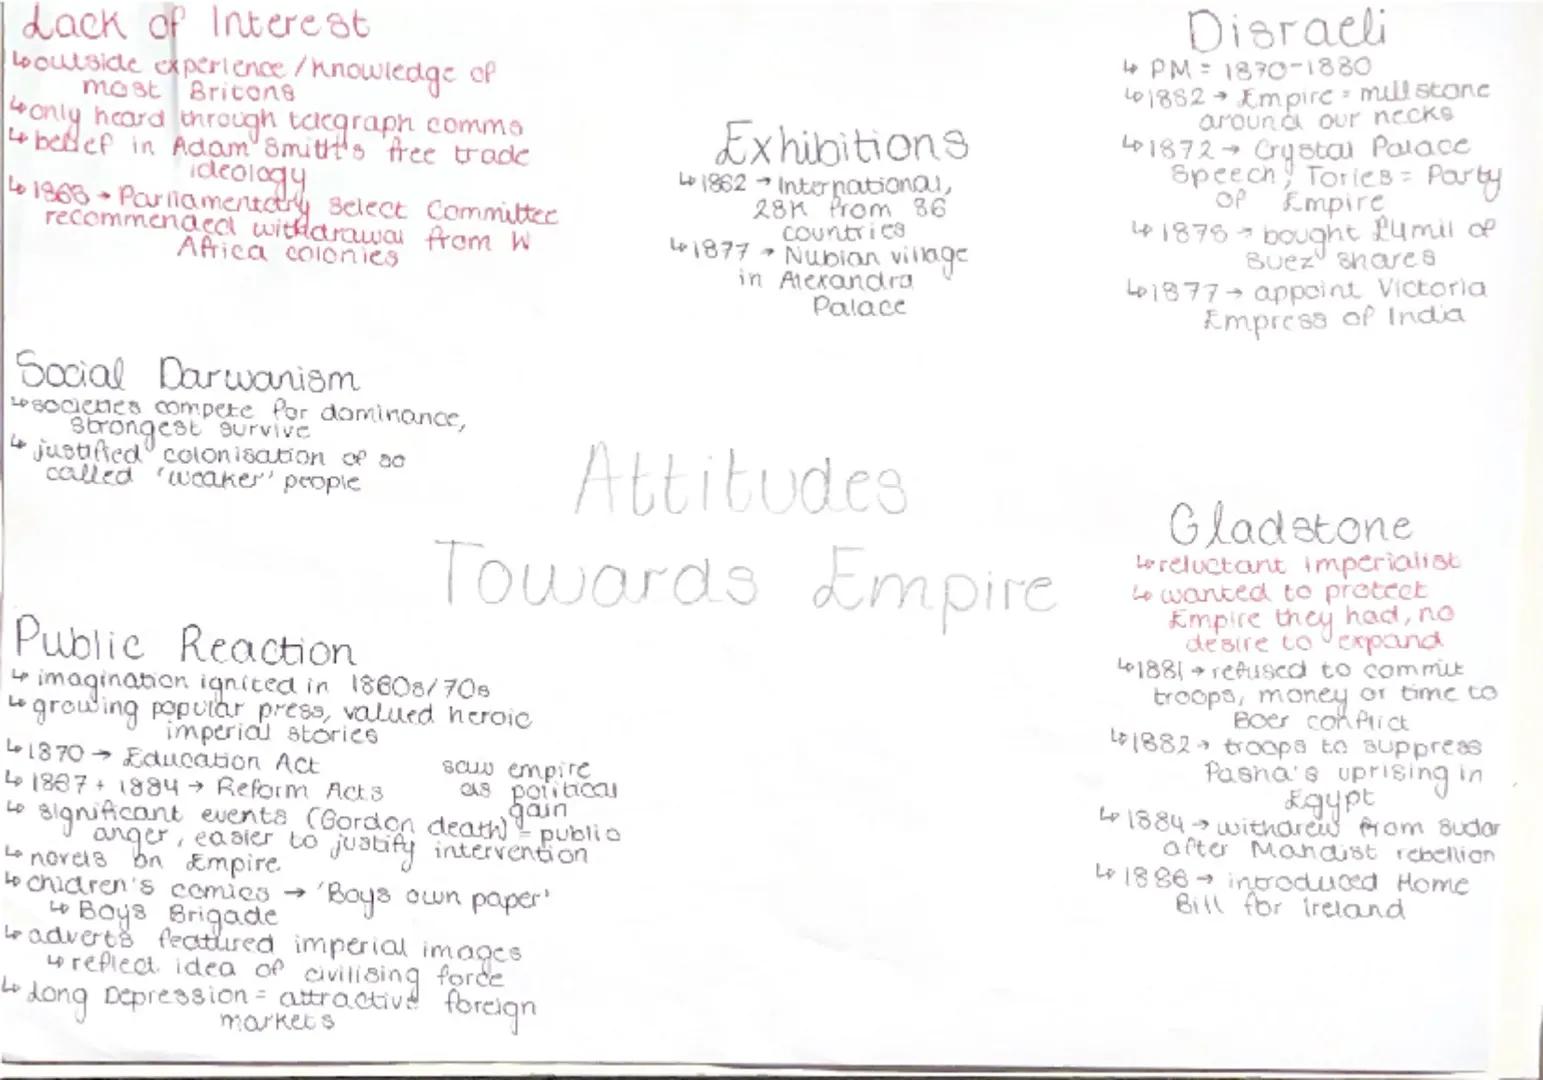 Lack of Interest
↳ outside experience/knowledge of
most Britons
↳ only heard through telegraph comms
↳ belief in Adam Smith's free trade
ideology
↳ 1868 → Parliamentary Select Committee
recommended withdrawal from W
Africa colonies
Social Darwanism
↳ societies compete for dominance,
strongest survive
↳ justified colonisation of so
called 'weaker' people
Public Reaction
↳ imagination ignited in 1860s/70s
↳ growing popular press, valued heroic
imperial stories
↳ 1870 → Education Act
↳ 1867 + 1884 → Reform Acts
saw empire
as political
gain
↳ significant events (Gordon death) = public
anger, easier to justify intervention
↳ novels on Empire
↳ children's comics → 'Boys own paper'
↳ Boys Brigade
↳ adverts featured imperial images
↳ reflect idea of civilising force
↳ Long Depression = attractive foreign
markets
Exhibitions
↳ 1862 → International,
28K from 36
countries
↳ 1877 → Nubian village
in Alexandra
Palace
Attitudes
Towards Empire
Disraeli
↳ PM = 1870-1880
↳ 1852 → Empire = millstone
around our necks
↳ 1872 → Crystal Palace
Speech, Tories = Party
of Empire
↳ 1875 → bought £4mil of
Suez shares
↳ 1877 → appoint Victoria
Empress of India
Gladstone
↳ reluctant imperialist
↳ wanted to protect
Empire they had, no
desire to expand
↳ 1881 → refused to commit
troops, money or time to
Boer conflict
↳ 1882 → troops to suppress
Pasha's uprising in
Egypt
↳ 1884 → withdrew from Sudan
after Mahdist rebellion
↳ 1886 → introduced Home
Bill for Ireland